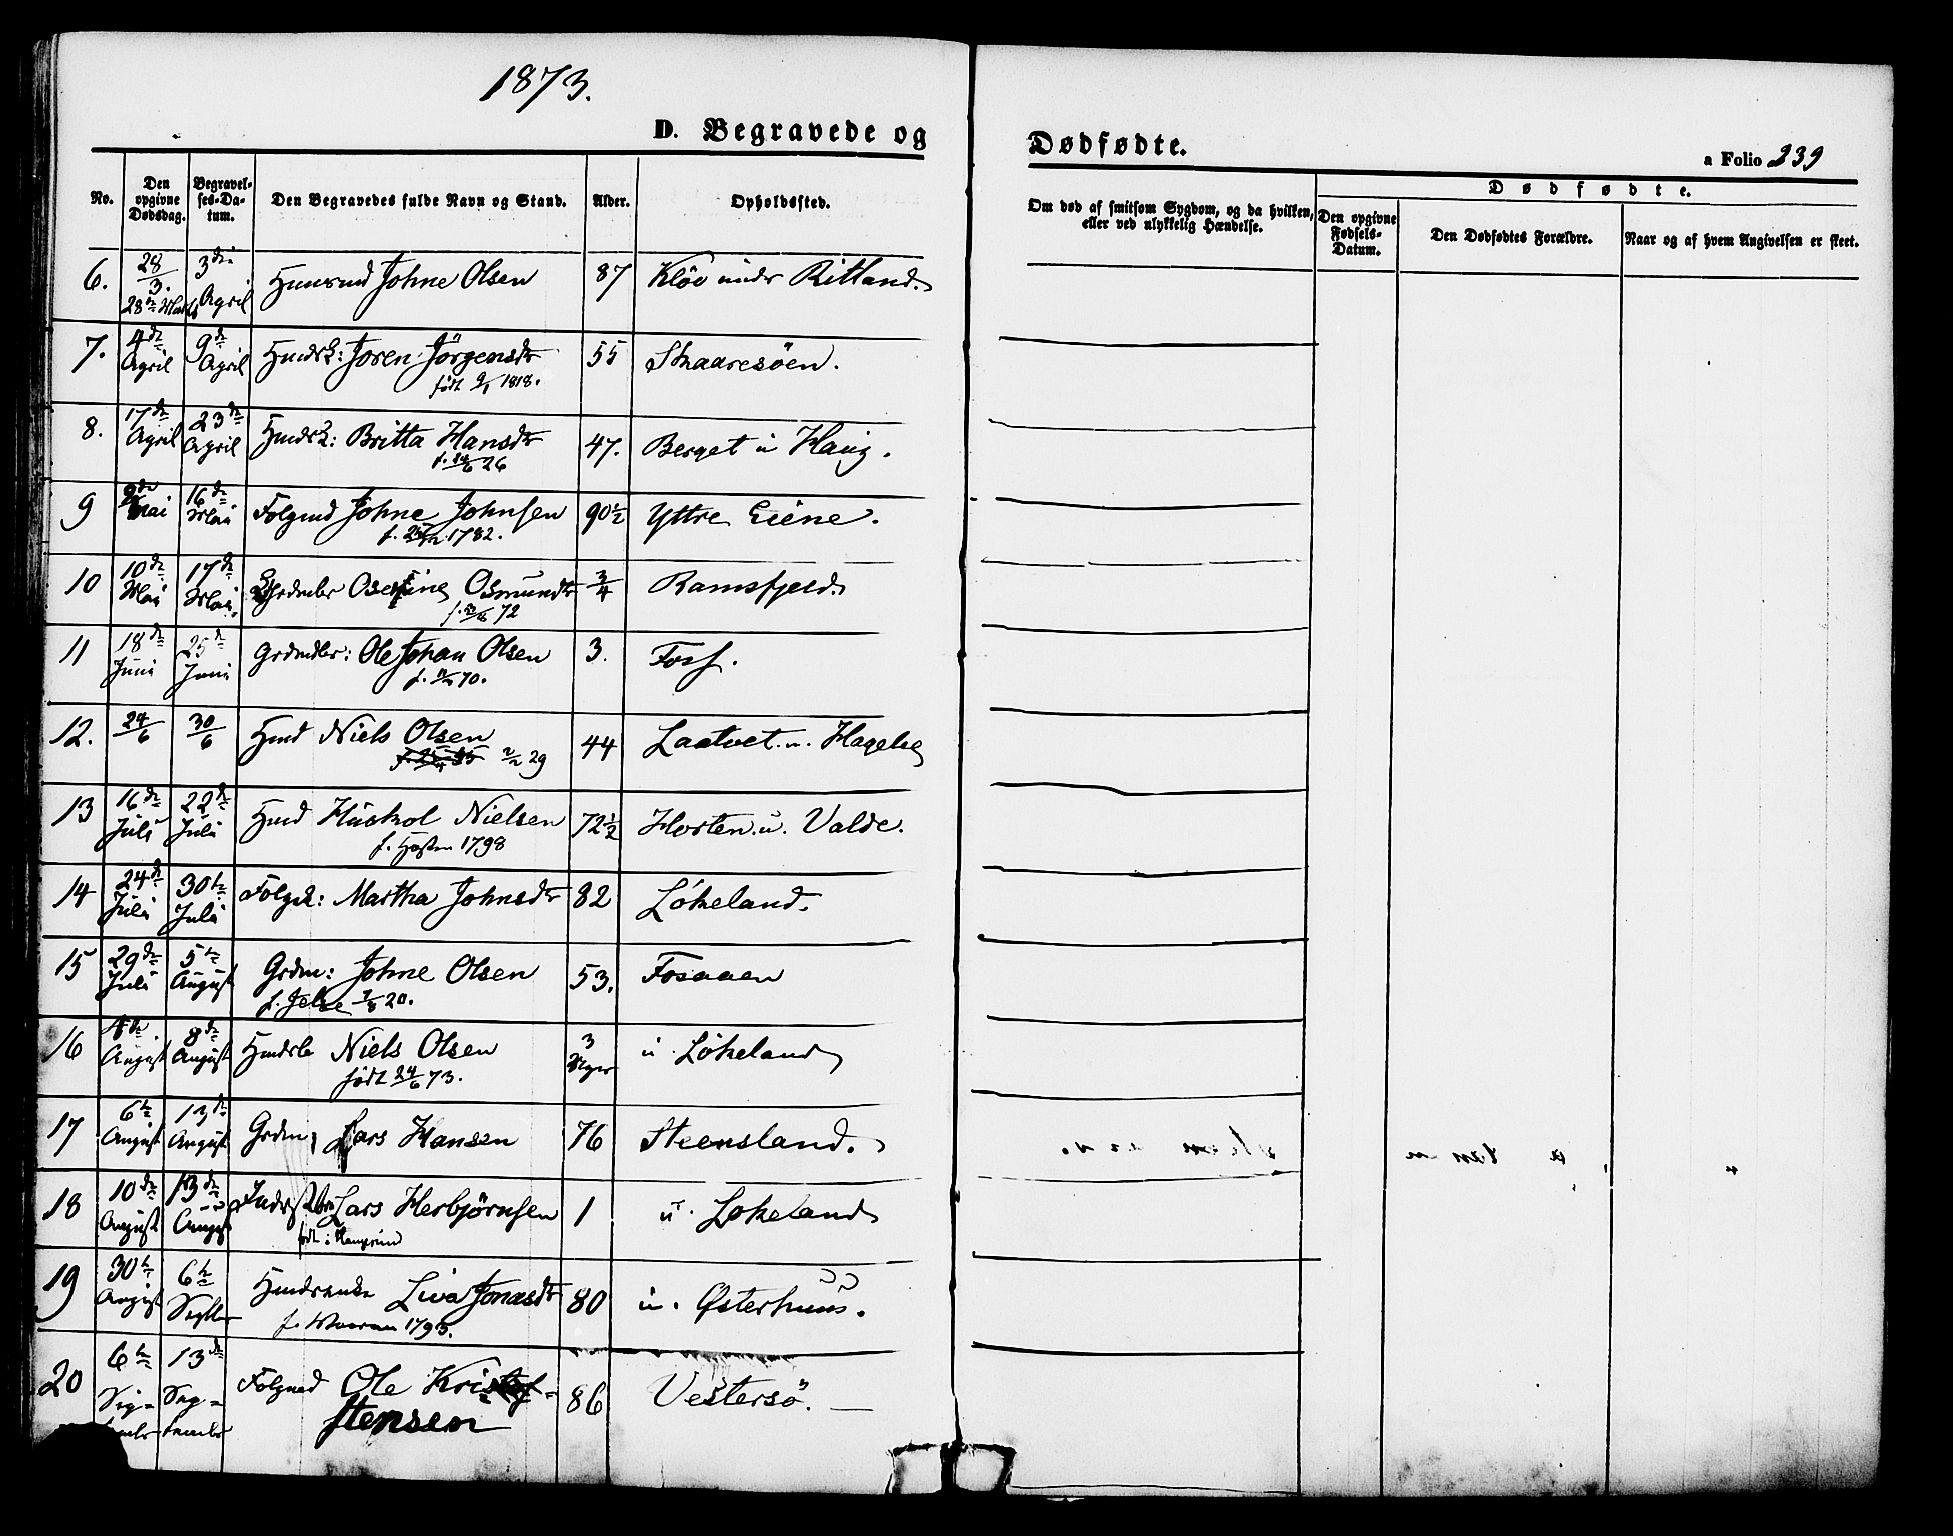 1873.
D. Begravede og
Dødfødte.
a Folio 239
No.
Den opgivne Dødsdag.
Begravelses-Datum.
Den Begravedes fulde Navn og Stand.
Alder.
Opholdssted.
Om død af smitsom Sygdom, og da hvilken, eller ved ulykkelig Hændelse.
Dødfødte.
Den opgivne Fødsels-Datum.
Den Dødfødtes Forældre.
Naar og af hvem Angivelsen er skeet.
6. 28/3. 3die Johne Olsen 87 Kløv under Ritland.
28de April
7. 4de April 9de April Hmdsk: Joren Jörgensdr 55 Skaaresöen.
født 9/1 1818.
8. 17de April 23de April Hmdsk: Britta Hansdr 47. Berget u Haug.
26
9 Mai 16de Mai Folgmd Johne Johnsen 90½ Yttre Eiene.
1782.
10 10de Mai 17de Mai Osmundsdr 3/4 Ramsfjeld.
72
11 18de Juni 25de Juni Grdmdbr: Ole Johan Olsen 3. Foss.
70.
12. 24/6 30/6 Hmd Niels Olsen 44 Laatvet. u. Hagelse
29
13 16de Juli 22de Juli Hmd Huskol Nielsen 72½ Horten. u. Valde.
f. Høsten 1798
14 24de Juli 30te Juli Folgek: Martha Johnsdr 82 Løkeland.
15 29de Juli 5te August Grdm: Johne Olsen 53. Fosaaen
f. Jelse 20.
16 August 8de August Niels Olsen 3 Uger u Løkeland
født 24/6 73.
17 6te August 13de August Grdm. Lars Hansen 76 Steensland.
18 10de August 13de Augst Inderst Lars Herbjørnsen 1 u. Løkeland
født i
19 30te August 6te Septbr Hmdsenke Liva Jonasdr 80 u. Østerhuus.
1793.
20 6te Sep= tember 13de Sep= tember Folgmd Ole Kri-
stensen 86 Vestersö. —